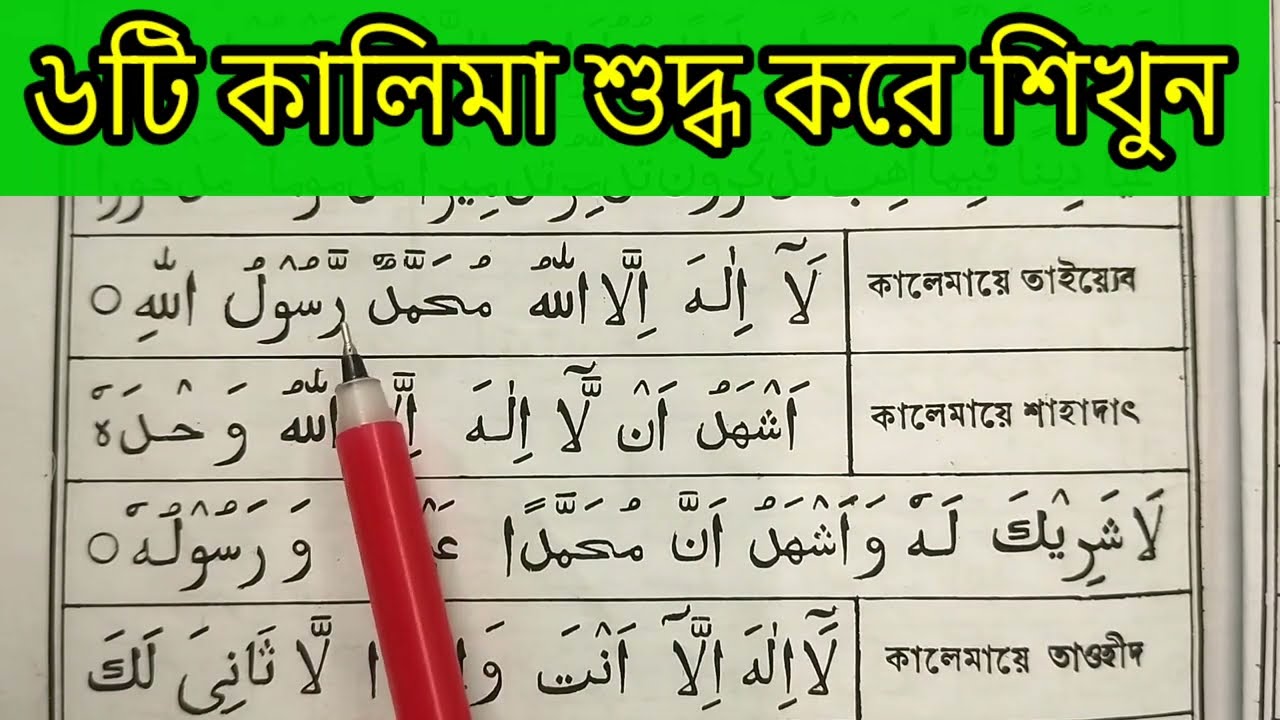 ৬টি কালিমা শুদ্ধ করে শিখুন
لَآ اِلٰهَ اِلَّا اللّٰهُ مُحَمَّدٌ رَّسُوْلُ اللّٰهِ ○
কালেমায়ে তাইয়্যেব
اَشْهَدُ اَنْ لَّآ اِلٰهَ اِلَّا اللّٰهُ وَحْدَهٗ
কালেমায়ে শাহাদাৎ
لَا شَرِيْكَ لَهٗ وَاَشْهَدُ اَنَّ مُحَمَّدًا وَرَسُوْلُهٗ ○
لَآ اِلٰهَ اِلَّآ اَنْتَ لَّا ثَانِىَ لَكَ
কালেমায়ে তাওহীদ